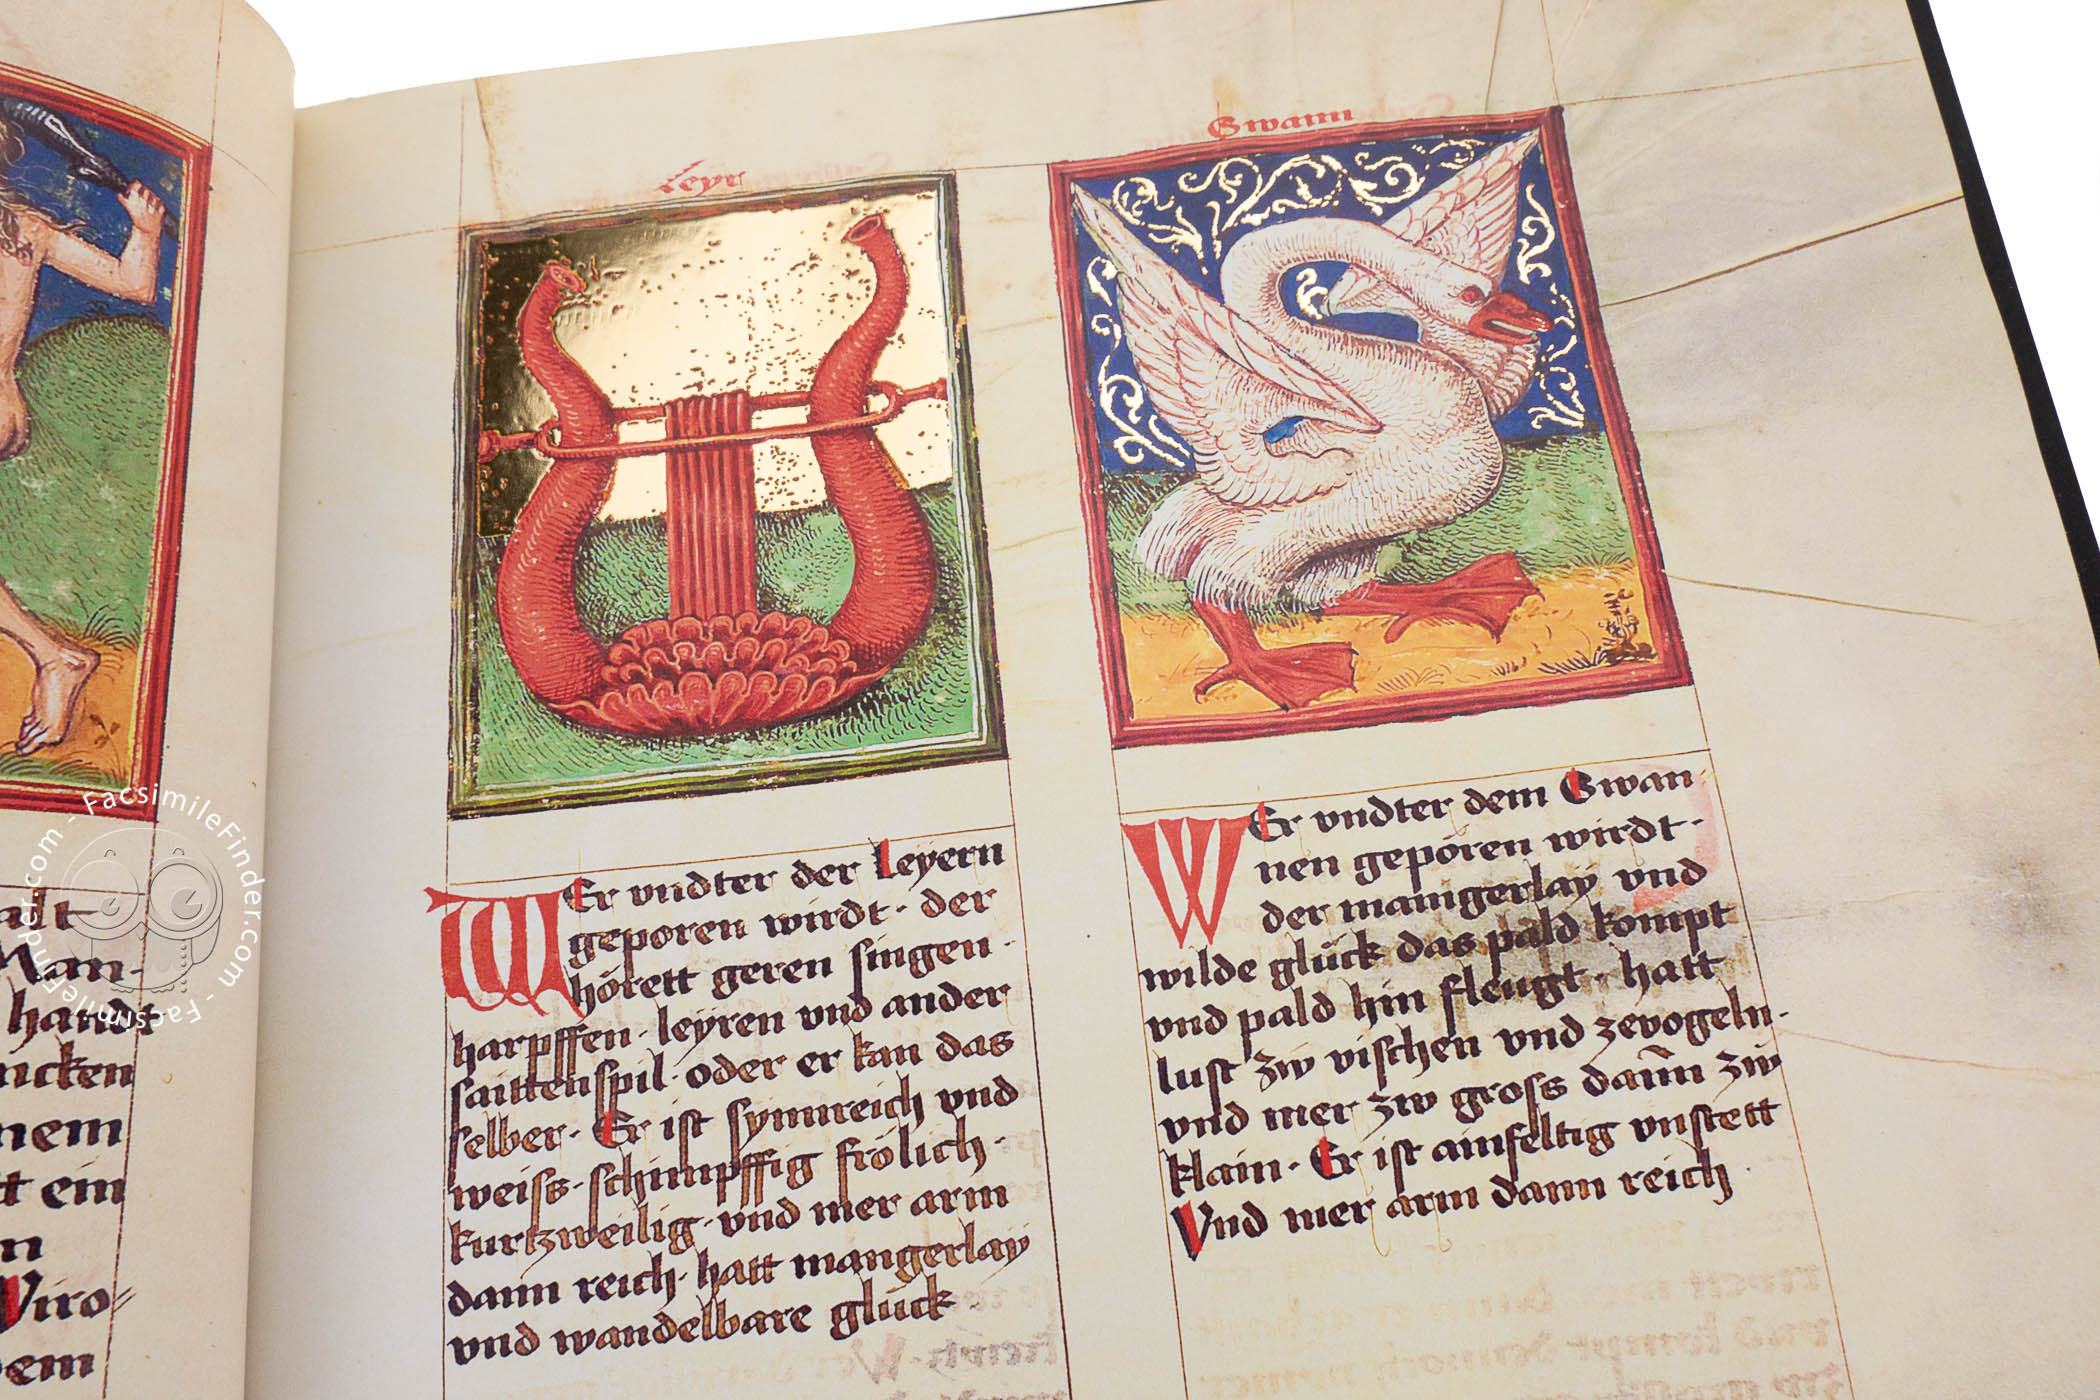 Leyr
Swann
WEr vndter der Leyern
geporen wirdt · der
hörett geren singen ·
harpffen · leyren vnd ander
saittenspil · oder er kan das
selber · Er ist synnreich vnd
weiss · schimpffig frölich ·
kurtzweilig · vnd mer arm
dann reich · hatt mangerlay
vnd wandelbare glück
WEr vndter dem Swan-
nen geporen wirdt ·
der mainigerlay vnd
wilde glück das pald kompt
vnd pald hin fleugt · hatt
lust zw vischen vnd zevogeln ·
vnd mer zw gross dann zw
klain · Er ist ainfeltig vnstett
Vnd mer arm dann reich ·
alt
Man-
handt
nicken
nem
tt ein
n
Viro-
dem
FacsimileFinder.com - FacsimileFinder.com -